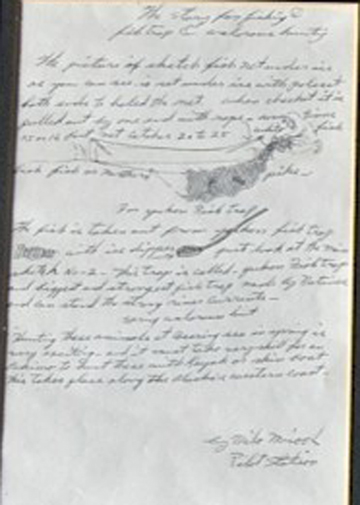 The story for fishing
fish trap & walrus hunting
The picture of sketch fish net under ice
as you can see is net under ice with
both ends to hold the net when checked it is
pulled out by one end with rope
15 or 16 but net catches 20 to 25 white fish
fish pike
For Yukon Fish trap
The fish is taken out from Yukon fish trap
with ice dipper just look at the
sketch No-2 - This trap is called Yukon Fish trap
and biggest and strongest fish trap made by Natives
and can stand the strong river currents -
walrus hunt
Hunting these animals at Bering sea in spring is
very exciting and it must take very skill for an
Eskimo to hunt these with kayak or skin boat
this takes place along the Alaska western coast -
by Mike
Pilot Station